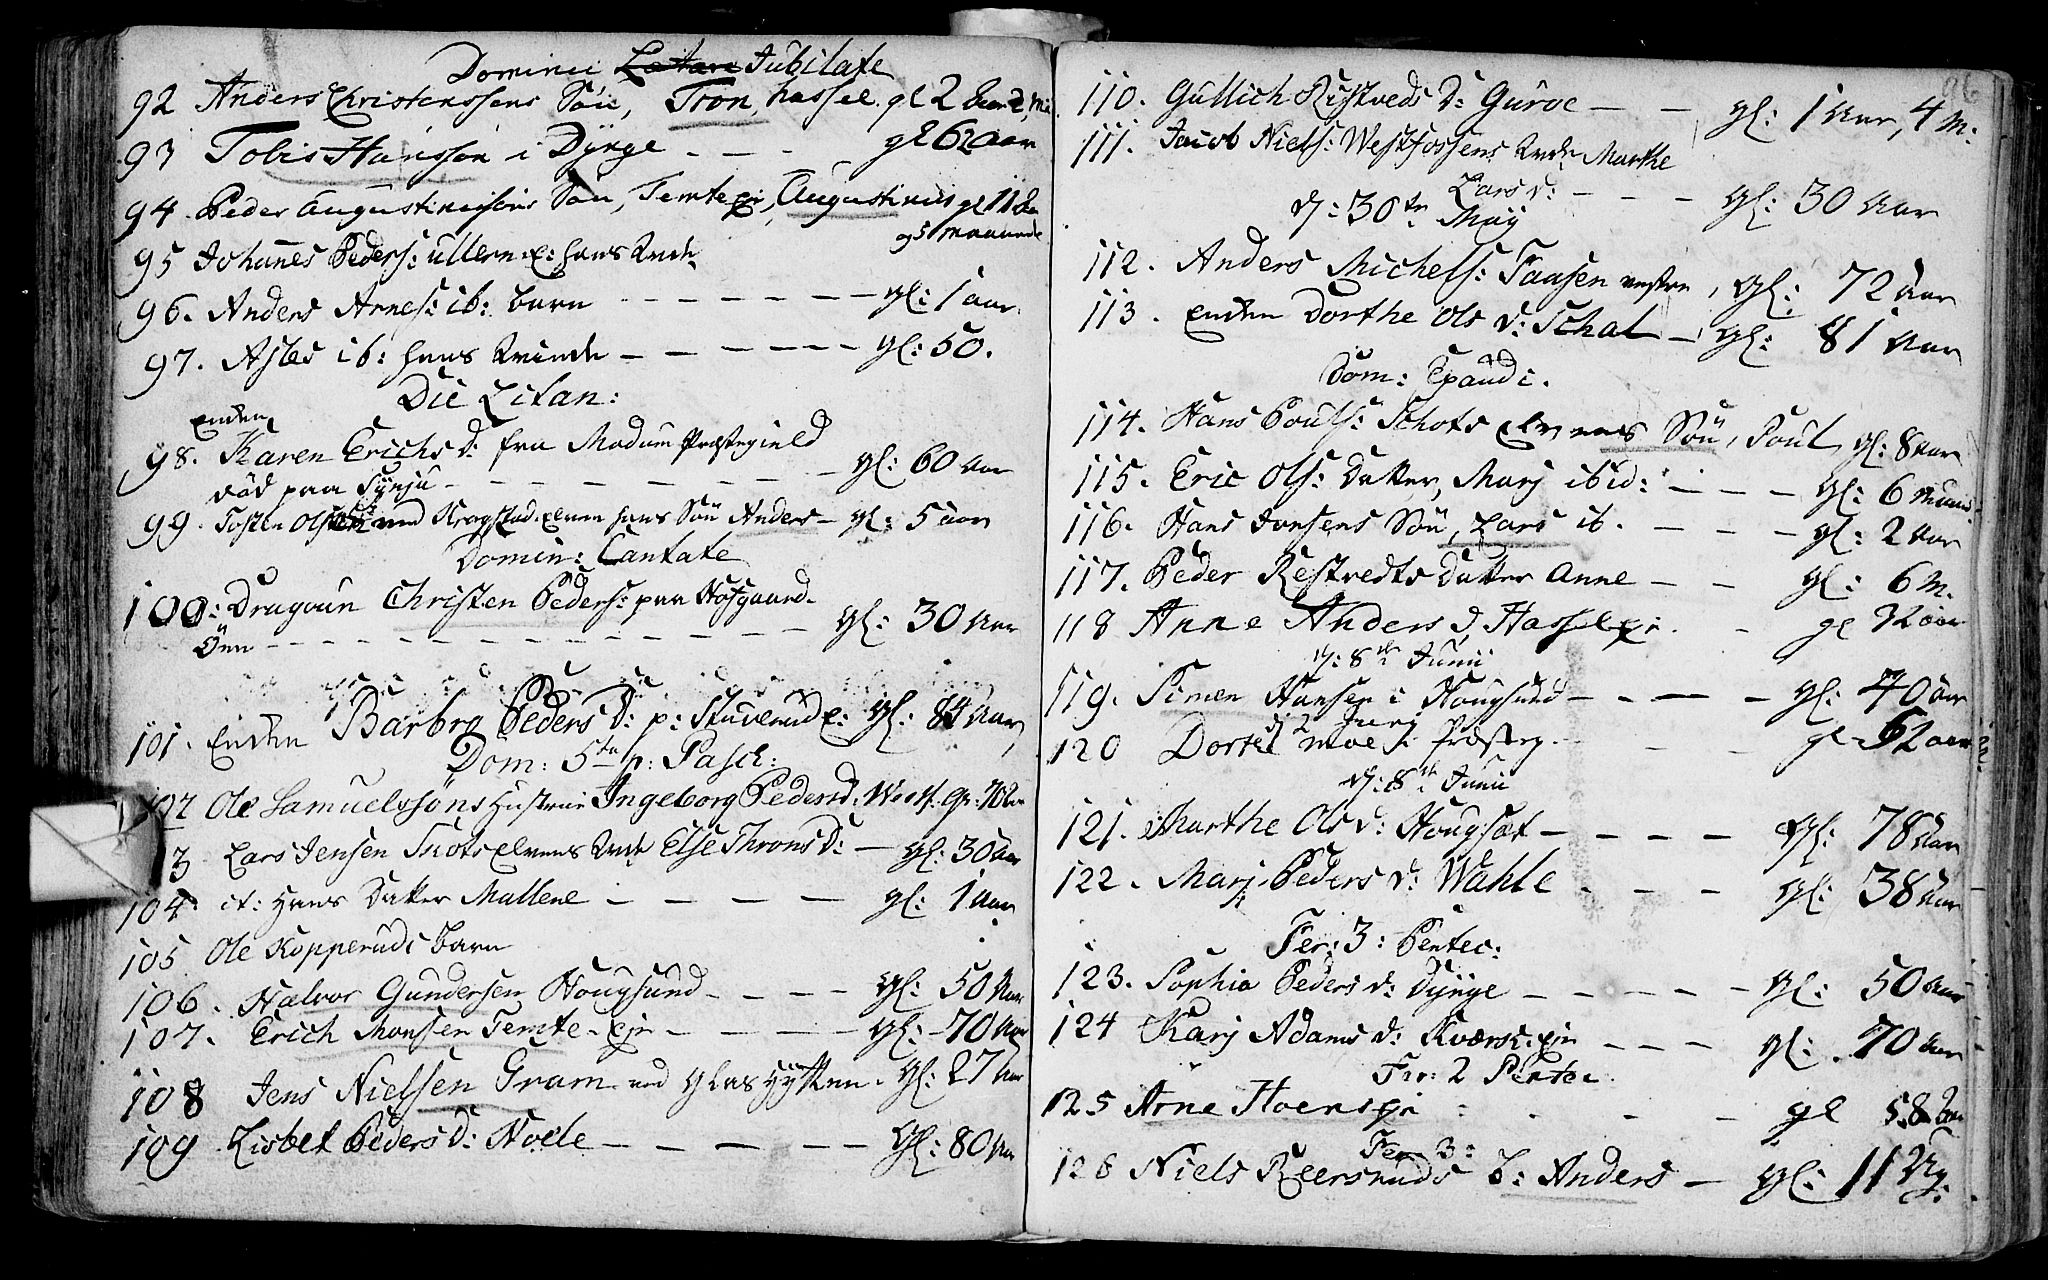 Dominic Lætare Jubilate
92 Anders Christenssens Søn, Tron, Hassel. gl 2 Aar 2 M
93 Tobis Hansson i Dÿnge - - - gl 62 aar
94. Peder Augustinusøns Søn, Temte Eje, Augustinus gl 11 Aar
og 5 Maaneder
95 Johannes Peders: Ullern E: hans Kinde
96. Anders Arnes: ib: barn - - - - - - gl: 1 aar.
97. Asles ib: hans Kvinde - - - - - - gl: 50.
Die Litan:
Enken
98. Karen Erichs d: fra Modum Præstegield
død paa Synju - - - - - - gl: 60 Aar
99. Tosten Ols ved Krogstad-Elven hans Søn Anders - gl: 5 aar
Domin: Cantate
100: Dragoun Christen Peders: paa Hofgaard-
Øen - - - - - - - - - gl: 30 Aar
101. Enken Barbro Peders D: p: Stuverud E: gl: 84 Aar,
Dom: 5te p: Pasch:
102 Ole Samuelssøns Hustrue Ingeborg Pedersd: Westf. gl: 70 Aar
3 Lars Jensen Skots Elvens Kinde Else Throns D: - gl: 30 Aar
104 it: Hans Datter Mallene - - - - gl: 1 Aar
105 Ole Kopperuds barn
106. Halvor Gundersen Hougsund - - - - gl: 50 Aar
107. Erich Monsen Temte-Eje - - - - gl: 70 Aar
108 Jens Nielsen Gram ved Glas Hÿtten. gl: 27 Aar
109 Lisbet Peders D: Hoele - - - - - gl: 80 Aar
110. Gullich Ristveds D: Guroe - - gl: 1 Aar, 4 M:
111. Jacob Niels: Westfossens Kinde Marthe
Lars d: - - - gl: 30 Aar
d: 30te Maÿ
112. Anders Michels: Faasen vestre, gl: 72 Aar
113. Enken Dorthe Ols d: Schal - gl: 81 Aar
Dom: Exaudi.
114. Hans Pouls: Schots Elvens Søn, Poul, gl: 8 Aar
115. Eric Ols: Datter, Marj ibid: - - - gl: 6 Maan:
116. Hans Jonsens Søn, Lars ib. - - - gl: 2 Aar
117. Peder Ristvedts Datter Anne - - gl: 6 M.
118 Anne Anders d, Hassel Eje. - gl 32 aar
d: 8te Junii
119. Simen Hansen i Hougsund - - - - gl: 40 Aar
d 2 Junj
120 Dortel Moe i Præsteg. - - - gl 62 aar
d: 8te Junii
121. Marthe Ols d: Hougsæt - - - - gl: 78 Aar
122. Marj Peders d: Wahle - - - gl: 38 Aar
Fer: 3: Pentec:
123. Sophia Peders d: Dÿnge - - - - - gl: 50 Aar
124 Karj Adams d: Kværsk: Eje - - - gl: 70 Aar
Fer: 2 Pentec.
125 Arne Hoens Eje - - - - gl 58 Aar
Fer 3:
126 Niels Reersruds b: Anders - gl: 11 Ug: